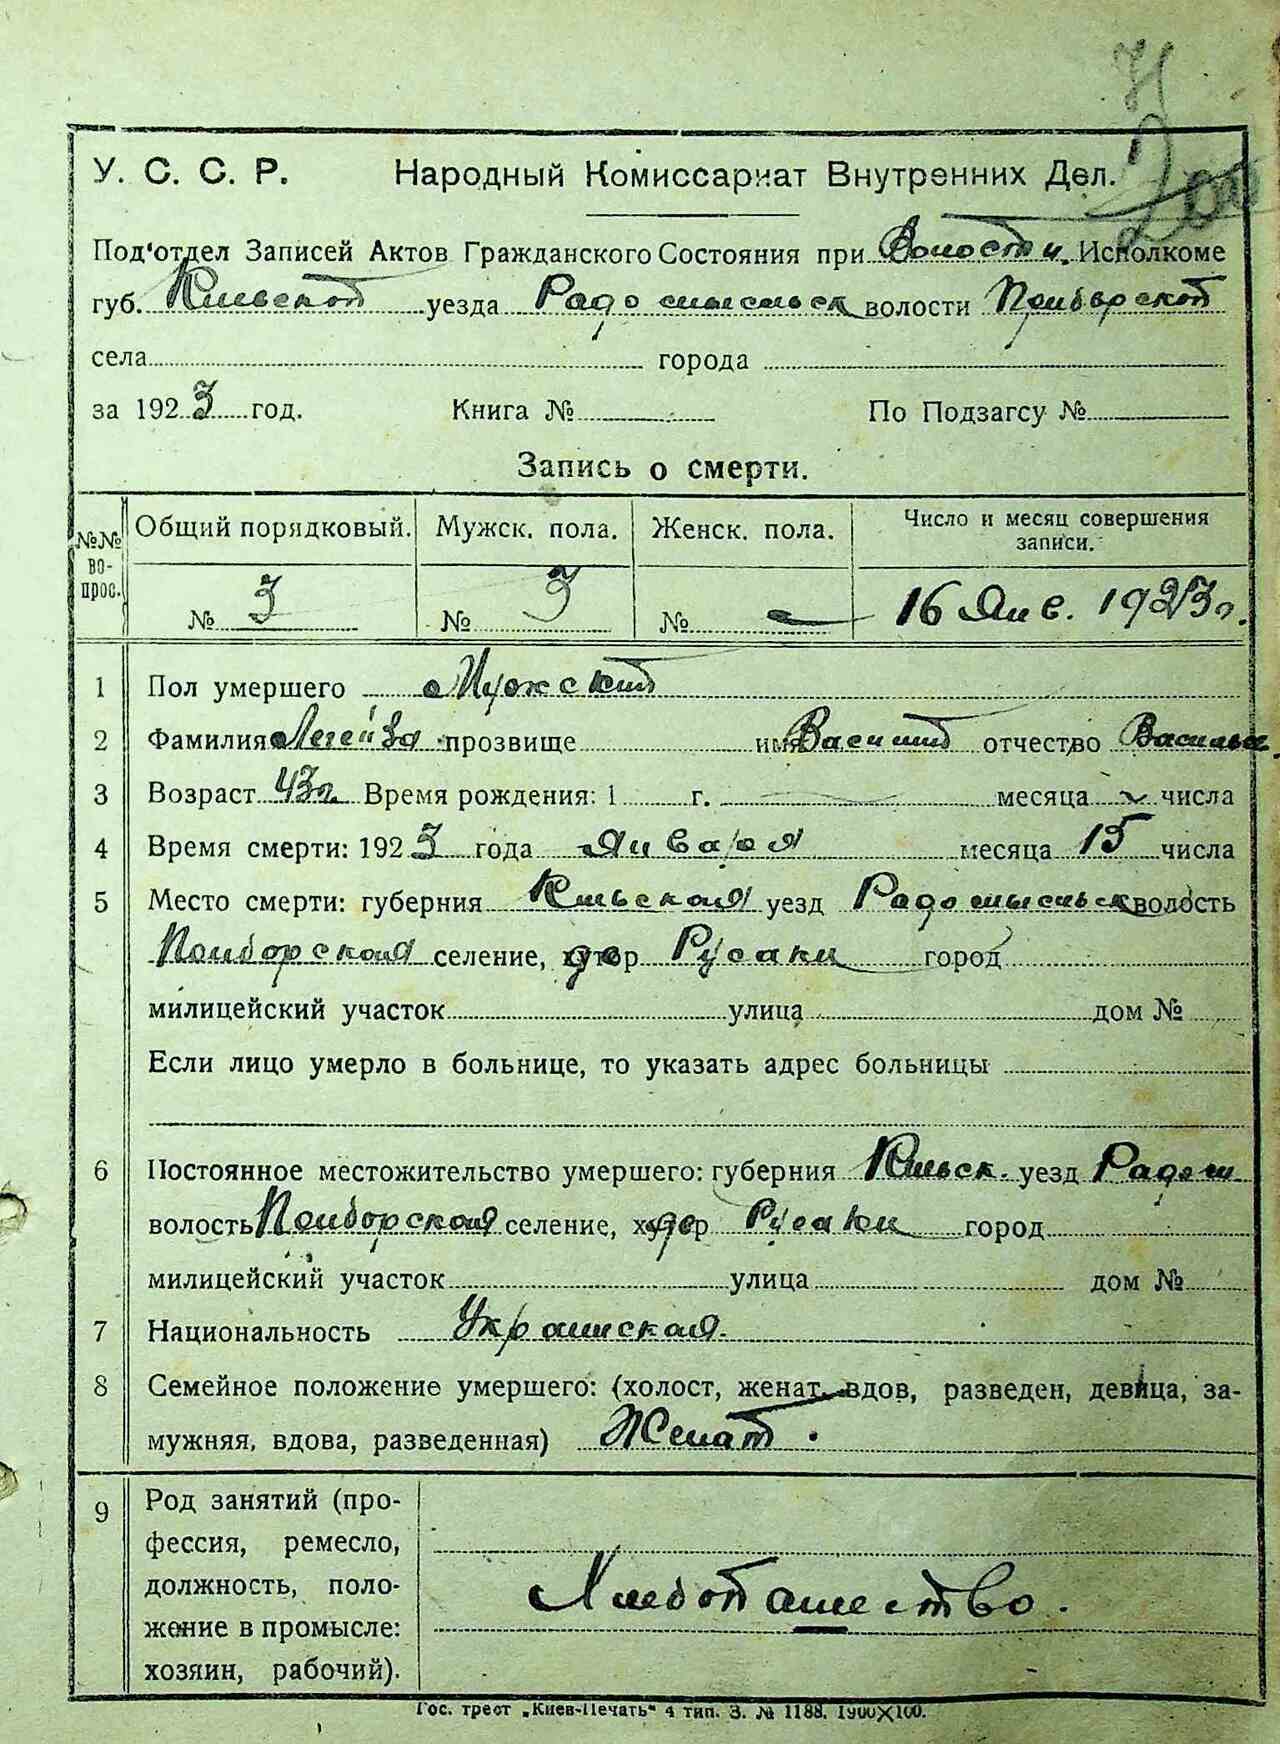 200
У. С. С. Р. Народный Комиссариат Внутренних Дел.
Под'отдел Записей Актов Гражданского Состояния при Волостн. Исполкоме
губ. Киевской уезда Радомысльск волости Приборской
села города
за 1923 год. Книга № По Подзагсу №
Запись о смерти.
№№ вопрос. Общий порядковый. Мужск. пола. Женск. пола. Число и месяц совершения записи.
№ 3 № 3 № — 16 Янв. 1923 г.
1 Пол умершего Мужский
2 Фамилия Легейда прозвище имя Василий отчество Василье
3 Возраст 43 г. Время рождения: 1 г. месяца числа
4 Время смерти: 1923 года Января месяца 15 числа
5 Место смерти: губерния Киевская уезд Радомысльск волость
Приборская селение, хутор дер Русаки город
милицейский участок улица дом №
Если лицо умерло в больнице, то указать адрес больницы
6 Постоянное местожительство умершего: губерния Киевск. уезд Радом
волость Приборская селение, хутор дер Русаки город
милицейский участок улица дом №
7 Национальность Украинская.
8 Семейное положение умершего: (холост, женат, вдов, разведен, девица, за-
мужняя, вдова, разведенная) Женат.
9 Род занятий (про-
фессия, ремесло,
должность, поло-
жение в промысле:
хозяин, рабочий).
Хлебопашество.
Гос. трест „Киев-Печать" 4 тип. З. № 1188. 1900×100.